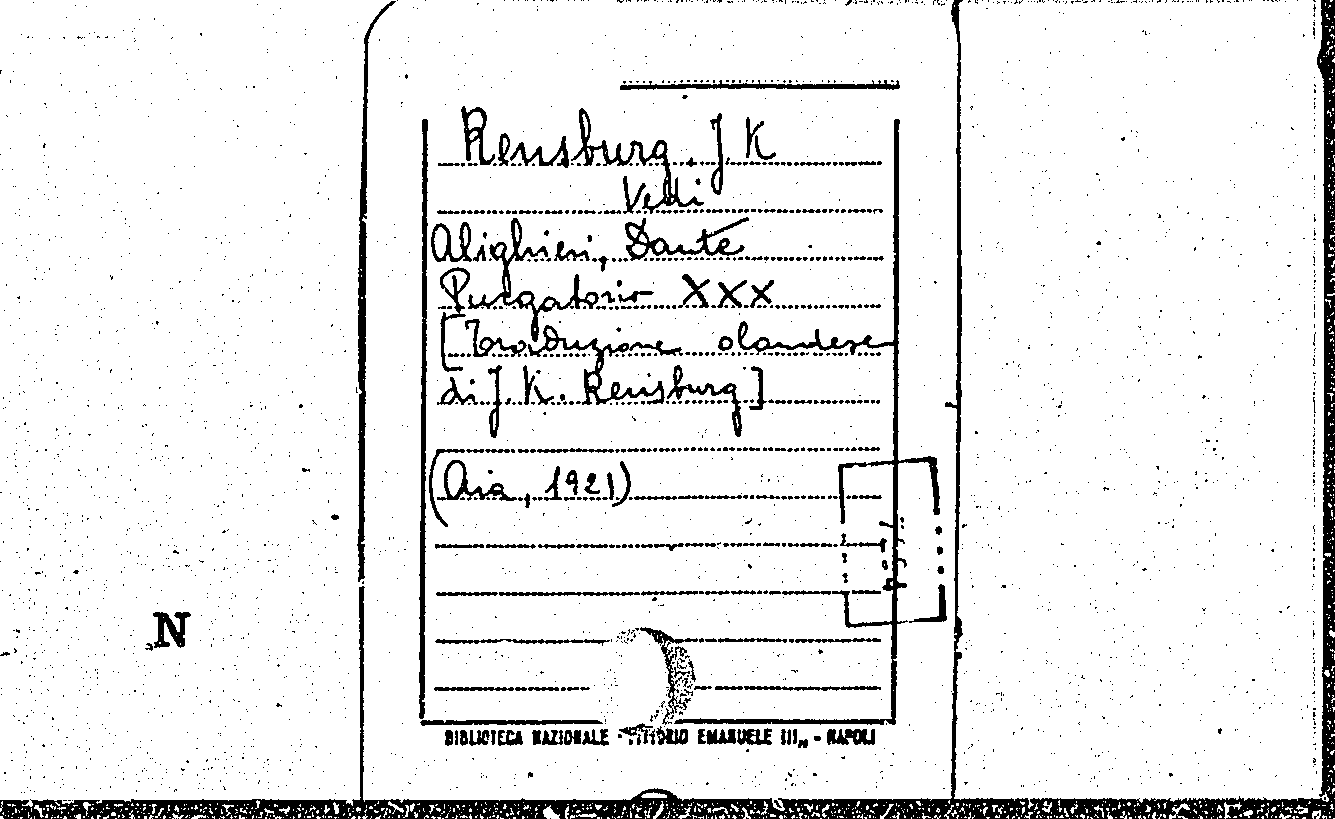 Rensburg. J. K
Vedi
Alighieri, Dante
Purgatorio XXX
[Traduzione olandese
di J. K. Rensburg]
(Aia, 1921)
N
BIBLIOTECA NAZIONALE - VITTORIO EMANUELE III,, - NAPOLI